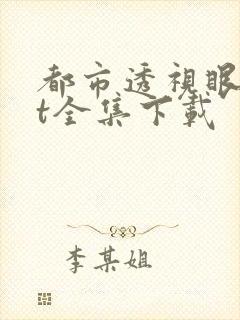 都市透視眼
t全集下載
李某姐